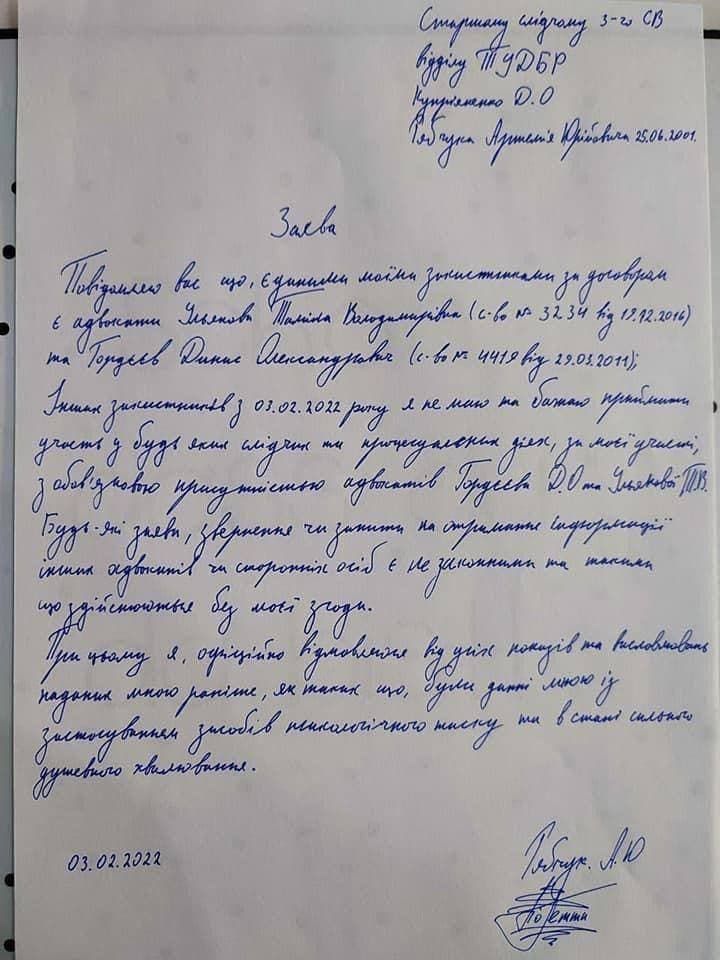 Старшому слідчому 3-го СВ
відділу ТУДБР
Купрієненко Д.О
Рябчука Артемія Юрійовича 25.06.2001.
Заява
Повідомляю вас що, єдиними моїми захистниками за договорам
є адвокати Ульякова Таліна Володимирівна (с-во № 3234 від 19.12.2016)
та Гордєєв Динис Олександрович (с-во № 4419 від 29.03.2011);
Інших захистників з 03.02.2022 року я не маю та бажаю приймати
участь у будь яких слідчих та процесуальних діях, за моєї участі,
з обов'язковою присутністю адвокатів Гордєєва Д.О та Ульякової Т.В.
Будь-які заяви, звернення чи запити на отримання інформації
інших адвокатів чи сторонніх осіб є не законними та такими
що здійснюються без моєї згоди.
При цьому я, офіційно відмовляюся від усіх показів та висловлювань
наданих мною раніше, як таких що, були данні мною із
застосуванням засобів психологічного тиску та в стані сильного
душевного хвилювання.
03.02.2022
Рябчук. А.Ю